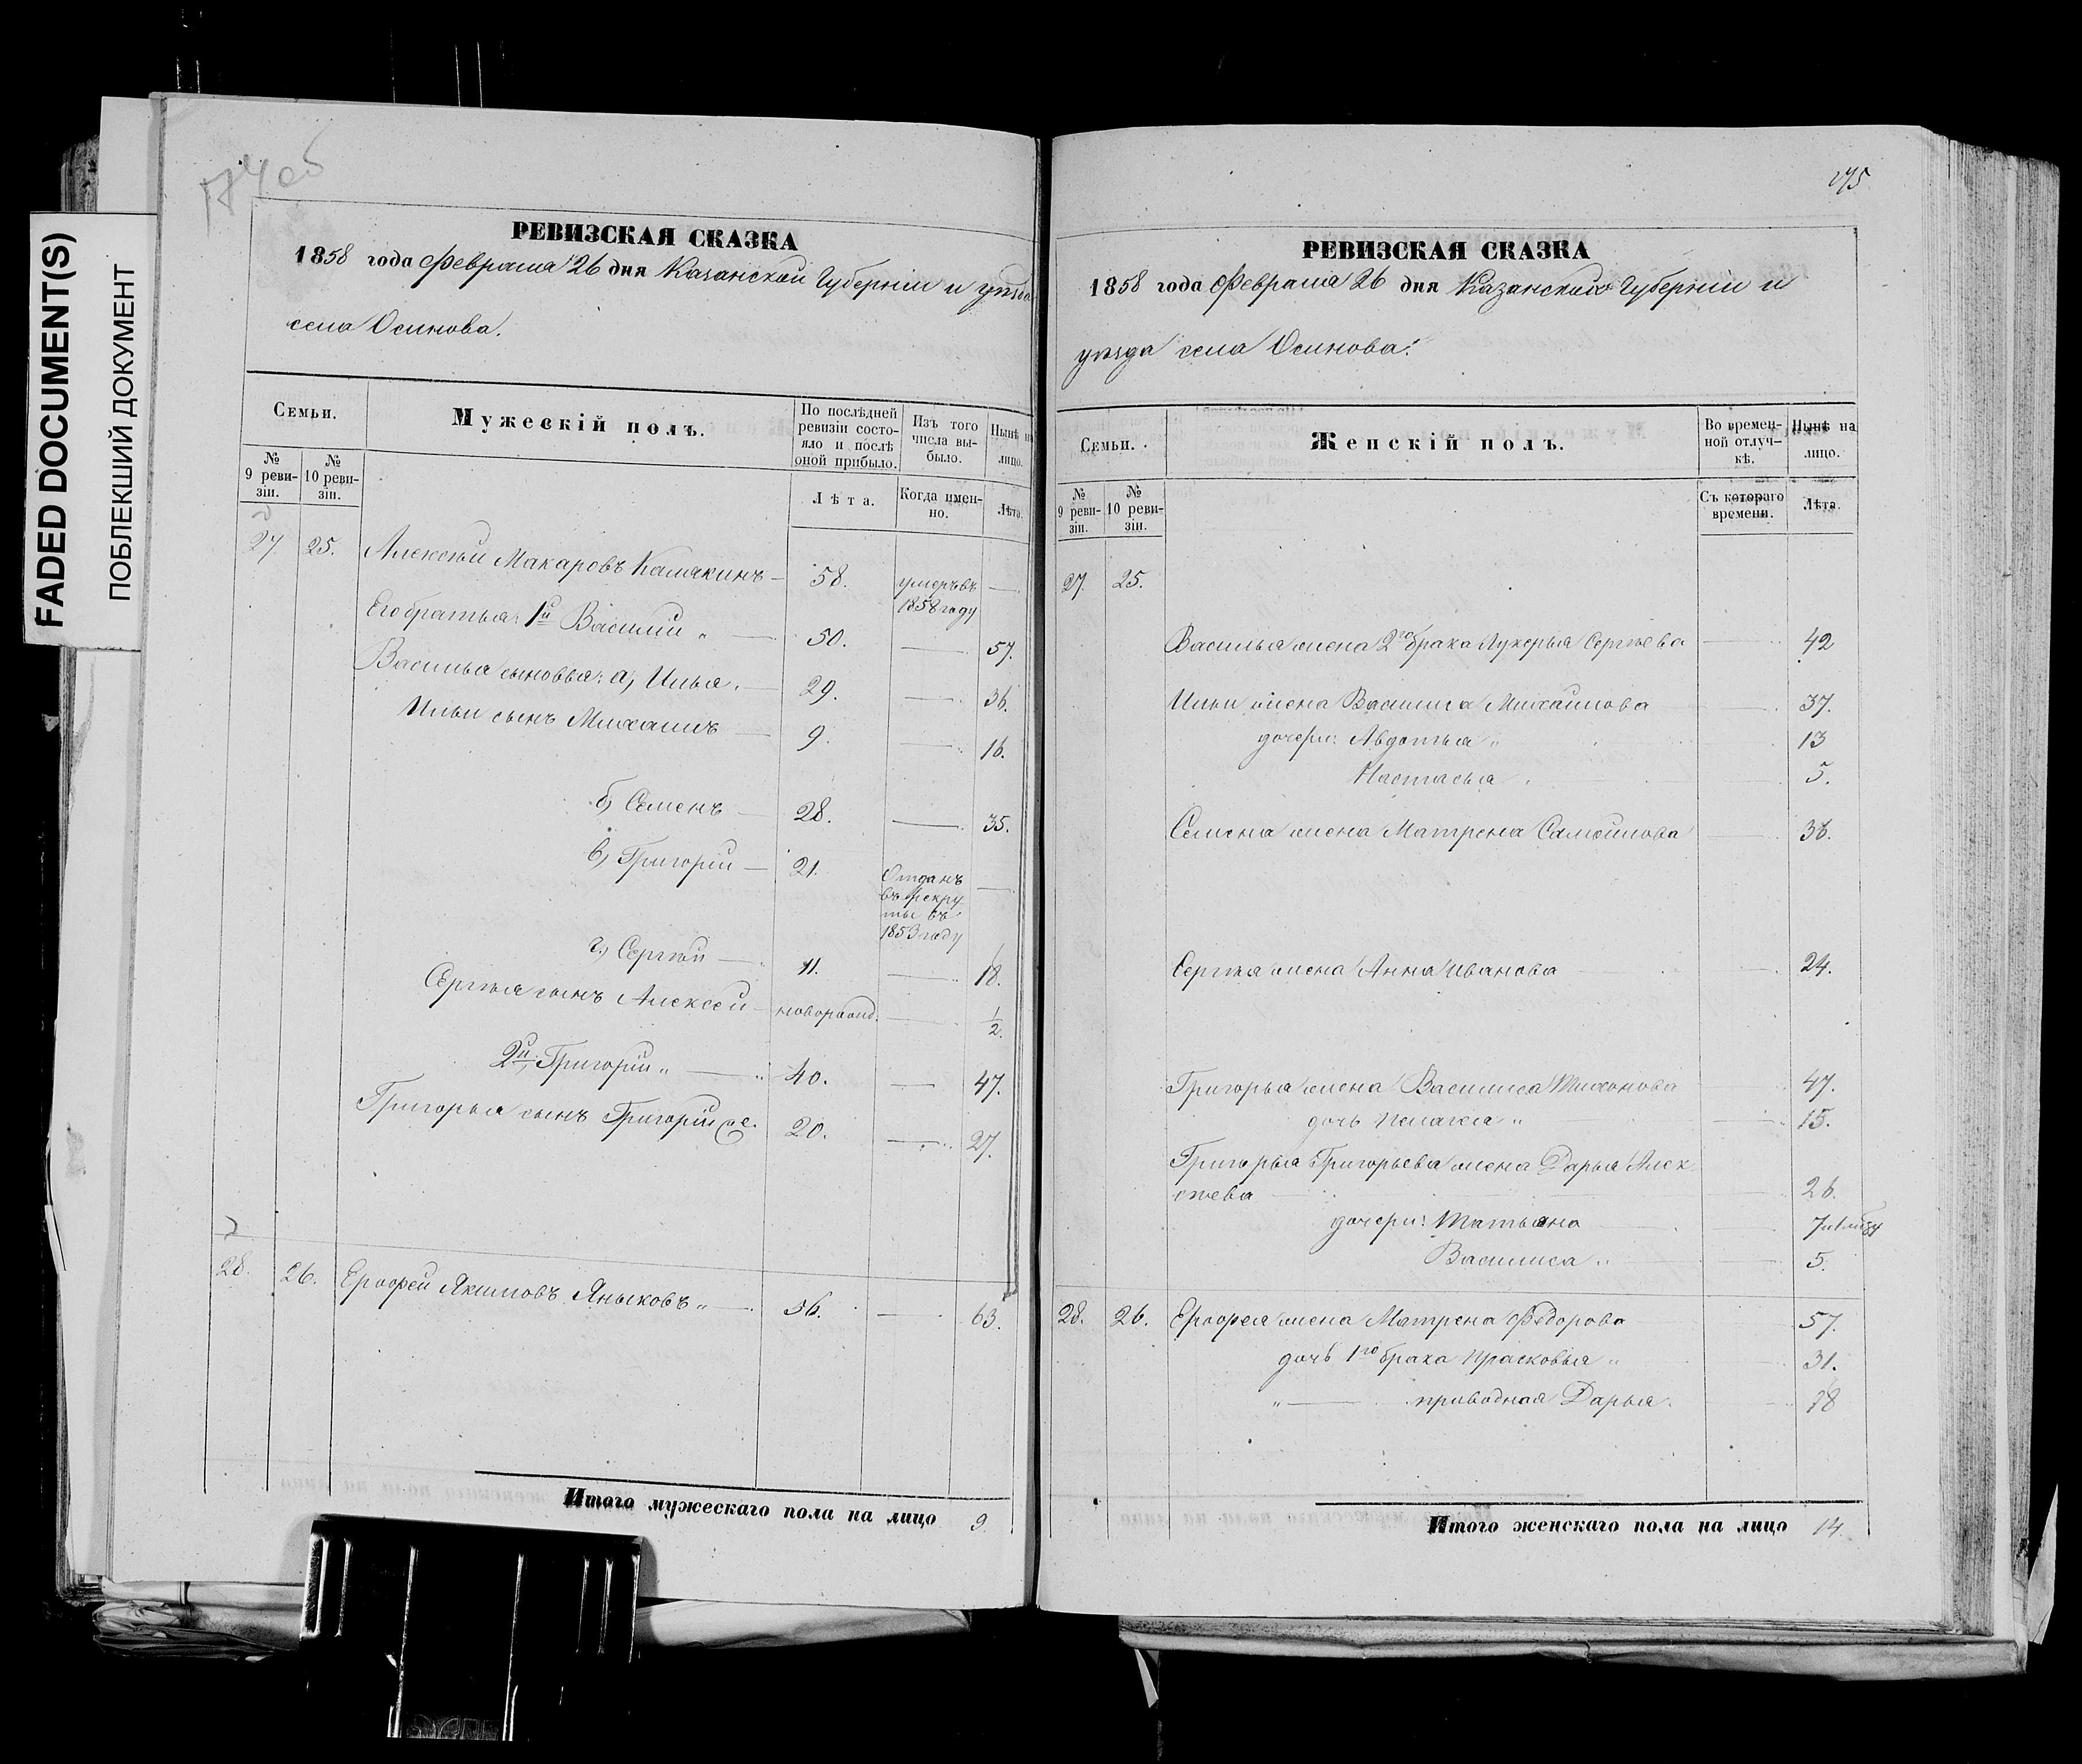 FADED DOCUMENT(S)
ПОБЛЕКШИЙ ДОКУМЕНТ
174об
РЕВИЗСКАЯ СКАЗКА
1858 года Февраля 26 дня Казанской Губерніи и уѣзда
села Осинова.
Семьи.
Мужескій полъ.
По послѣдней ревизіи состояло и послѣ оной прибыло.
Изъ того числа выбыло.
Нынѣ на лицо.
№ 9 ревизіи.
№ 10 ревизіи.
Лѣта.
Когда именно.
Лѣта.
27 25. Алексѣй Макаровъ Камакинъ — 58. умеръ въ 1858 году —
Его братья: 1й Василій „ — 50. — 57.
Василья сыновья: а, Илья. — 29. — 36.
Ильи сынъ Михаилъ — 9. — 16.
б, Семенъ — 28. — 35.
в, Григорій — 21. Отданъ въ рекруты въ 1853 году —
г, Сергѣй — 11. — 18.
Сергѣя сынъ Алексѣй — новорожд. — 1/2.
2й, Григорій „ — 40. — 47.
Григорья сынъ Григорій 20. — 27.
28. 26. Ерофей Якимовъ Яныковъ „ — 56. — 63.
Итого мужескаго пола на лицо 9
175
РЕВИЗСКАЯ СКАЗКА
1858 года Февраля 26 дня Казанской Губерніи и
уѣзда села Осинова.
Семьи.
Женскій полъ.
Во временной отлучкѣ.
Нынѣ на лицо.
№ 9 ревизіи.
№ 10 ревизіи.
Съ котораго времени.
Лѣта.
27. 25.
Василья жена 2го брака Лукерья Сергѣева — 42
Ильи жена Василиса Михайлова — 37.
дочери: Авдотья „ — 13
Настасья — 5.
Семена жена Матрена Самойлова — 36.
Сергѣя жена Анна Иванова — 24.
Григорья жена Василиса Тихонова 47.
дочь Пелагея „ — 15.
Григорья Григорьева жена Дарья Алек
сѣева — 26.
дочери: Татьяна 7
Василиса „ 5.
28. 26. Ерофея жена Матрена Федорова 57.
дочь 1го брака Прасковья „ 31.
„ — приводная Дарья. 18
Итого женскаго пола на лицо 14.